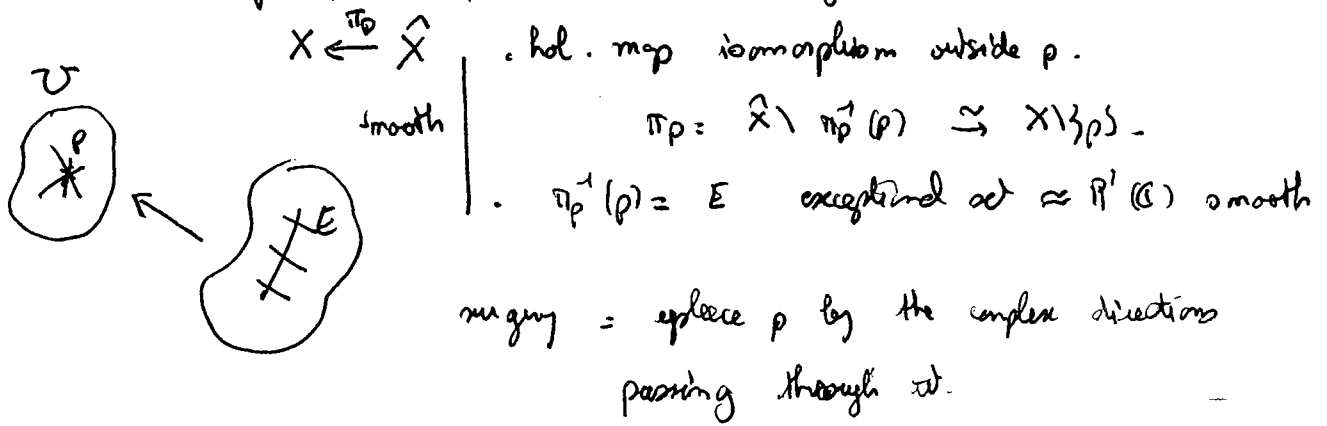 X ←π_p X̂ . hol. map isomorphism outside p.
U
p
smooth
π_p : X̂ \ π_p⁻¹(p) ≃→ X\{p}.
. π_p⁻¹(p) = E exceptional set ≈ P¹(C) smooth
E
surgery = replace p by the complex directions
passing through it.